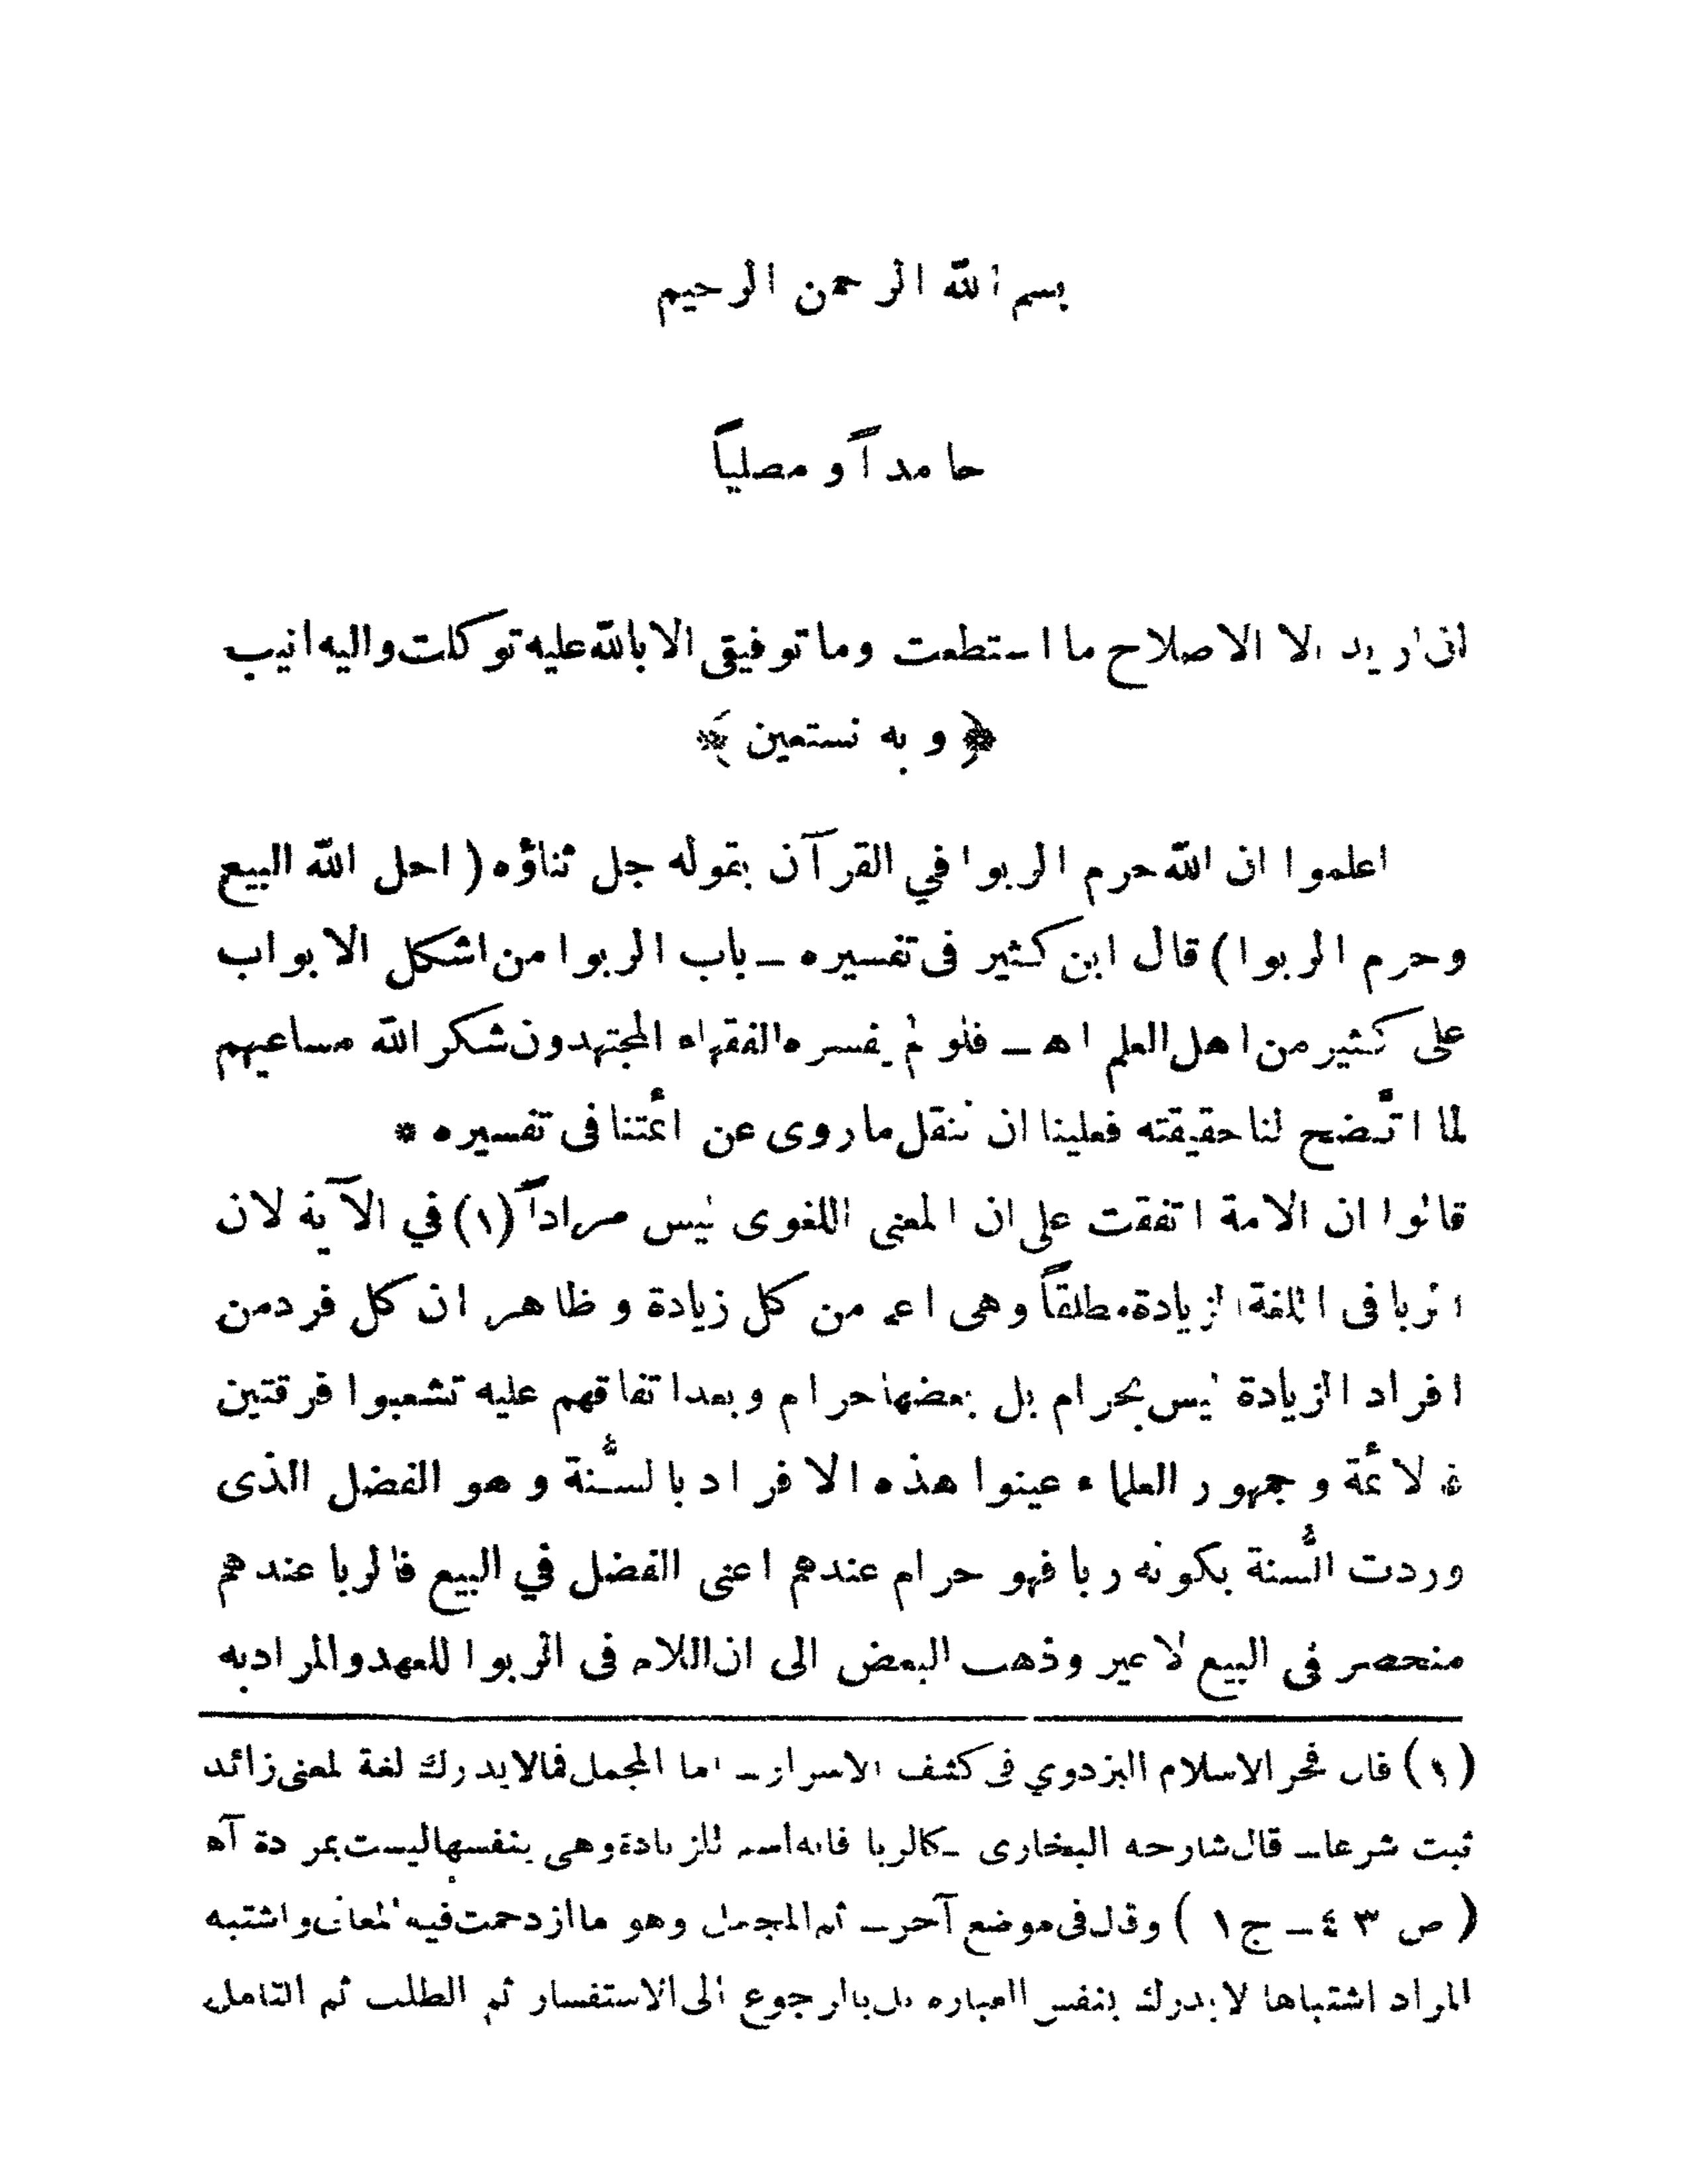 بسم الله الرحمن الرحيم
حامداً و مصلياً
انى اريد الا الاصلاح ما استطعت وما توفيقى الا بالله عليه توكلت واليه انيب
﴿ و به نستعين ﴾
اعلموا ان الله حرم الربوا في القرآن بقوله جل ثناؤه ( احل الله البيع
وحرم الربوا ) قال ابن كثير فى تفسيره ـ باب الربوا من اشكل الابواب
على كثير من اهل العلم اه ـ فلو لم يفسره الفقهاء المجتهدون شكر الله مساعيهم
لما اتّضح لنا حقيقته فعلينا ان ننقل ما روى عن ائمتنا فى تفسيره *
قالوا ان الامة اتفقت على ان المعنى اللغوى ليس مراداً (١) في الآية لان
الربا فى اللغة الزيادة مطلقاً وهى اعم من كل زيادة و ظاهر ان كل فرد من
افراد الزيادة ليس بحرام بل بعضها حرام وبعد اتفاقهم عليه تشعبوا فرقتين
فالائمة و جمهور العلماء عينوا هذه الافراد بالسُّنة و هو الفضل الذى
وردت السُّنة بكونه ربا فهو حرام عندهم اعنى الفضل في البيع فالربا عندهم
منحصر فى البيع لا غير وذهب البعض الى ان اللام فى الربوا للعهد والمراد به
(١) قال فخر الاسلام البزدوي فى كشف الاسرار ـ اما المجمل فمالا يدرك لغة لمعنى زائد
ثبت شرعا ـ قال شارحه البخارى ـ كالربا فانه اسم للزيادة وهى بنفسها ليست بمرادة آه
( ص ٤٣ ـ ج ١ ) وقال فى موضع آخر ـ ثم المجمل وهو ما ازدحمت فيه المعانى واشتبه
المراد اشتباها لا يدرك بنفس العباره بل بالرجوع الى الاستفسار ثم الطلب ثم التامل